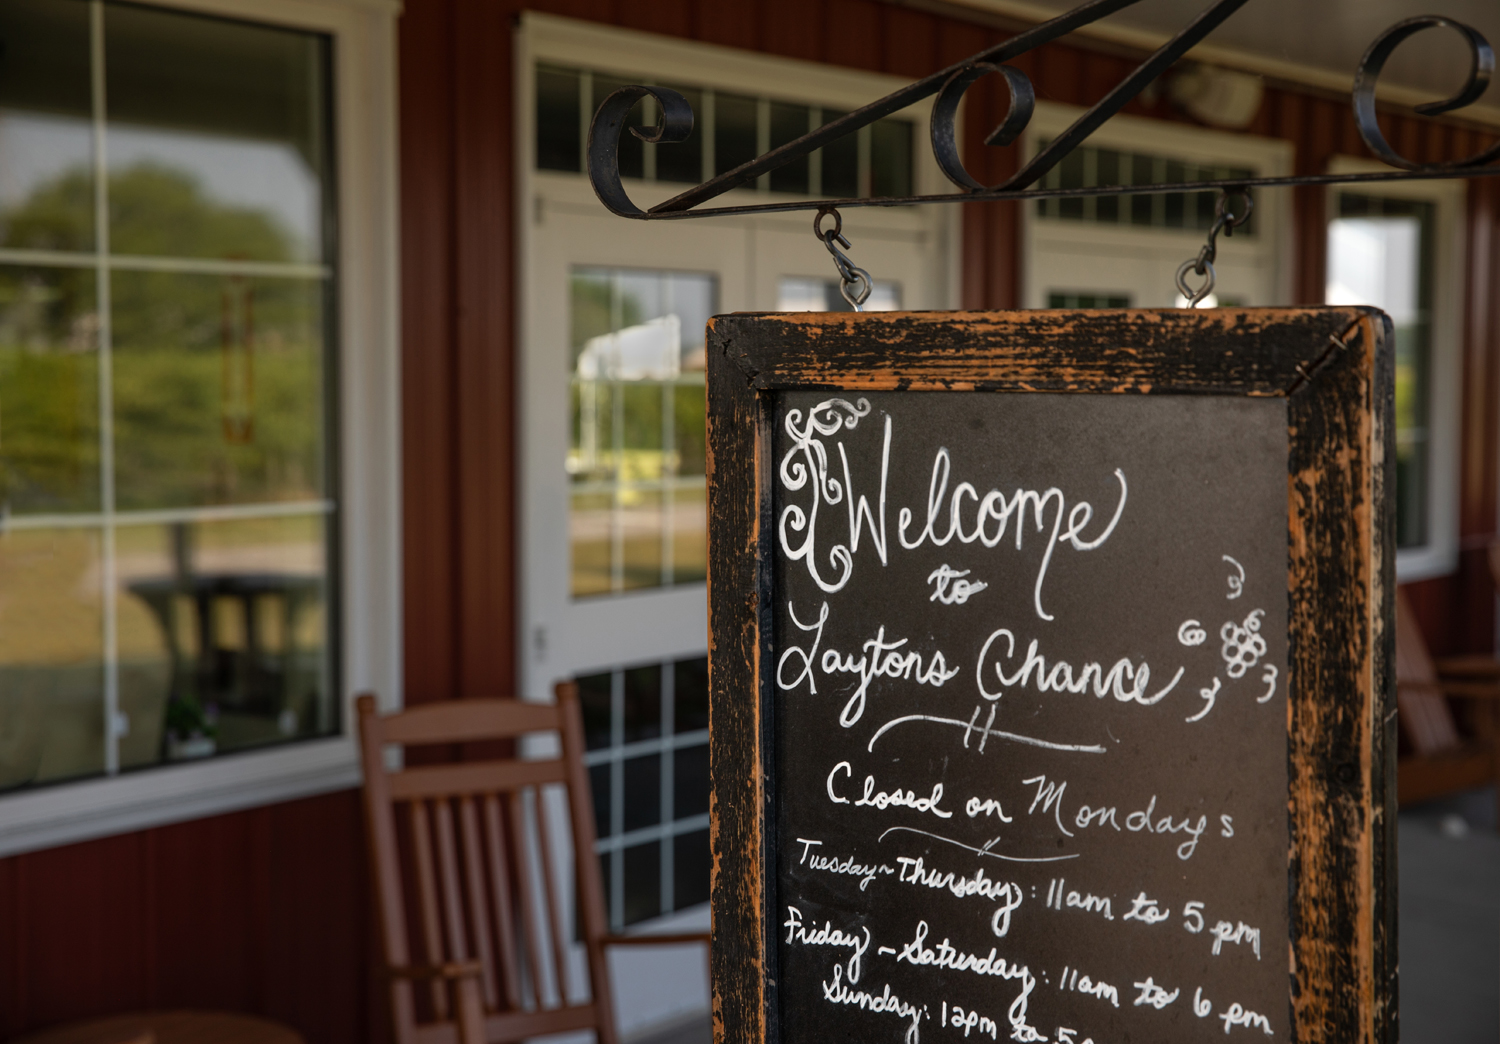 Welcome
to
Laytons Chance
Closed on Mondays
Tuesday~Thursday: 11am to 5 pm
Friday - Saturday: 11am to 6 pm
Sunday: 12pm to 5